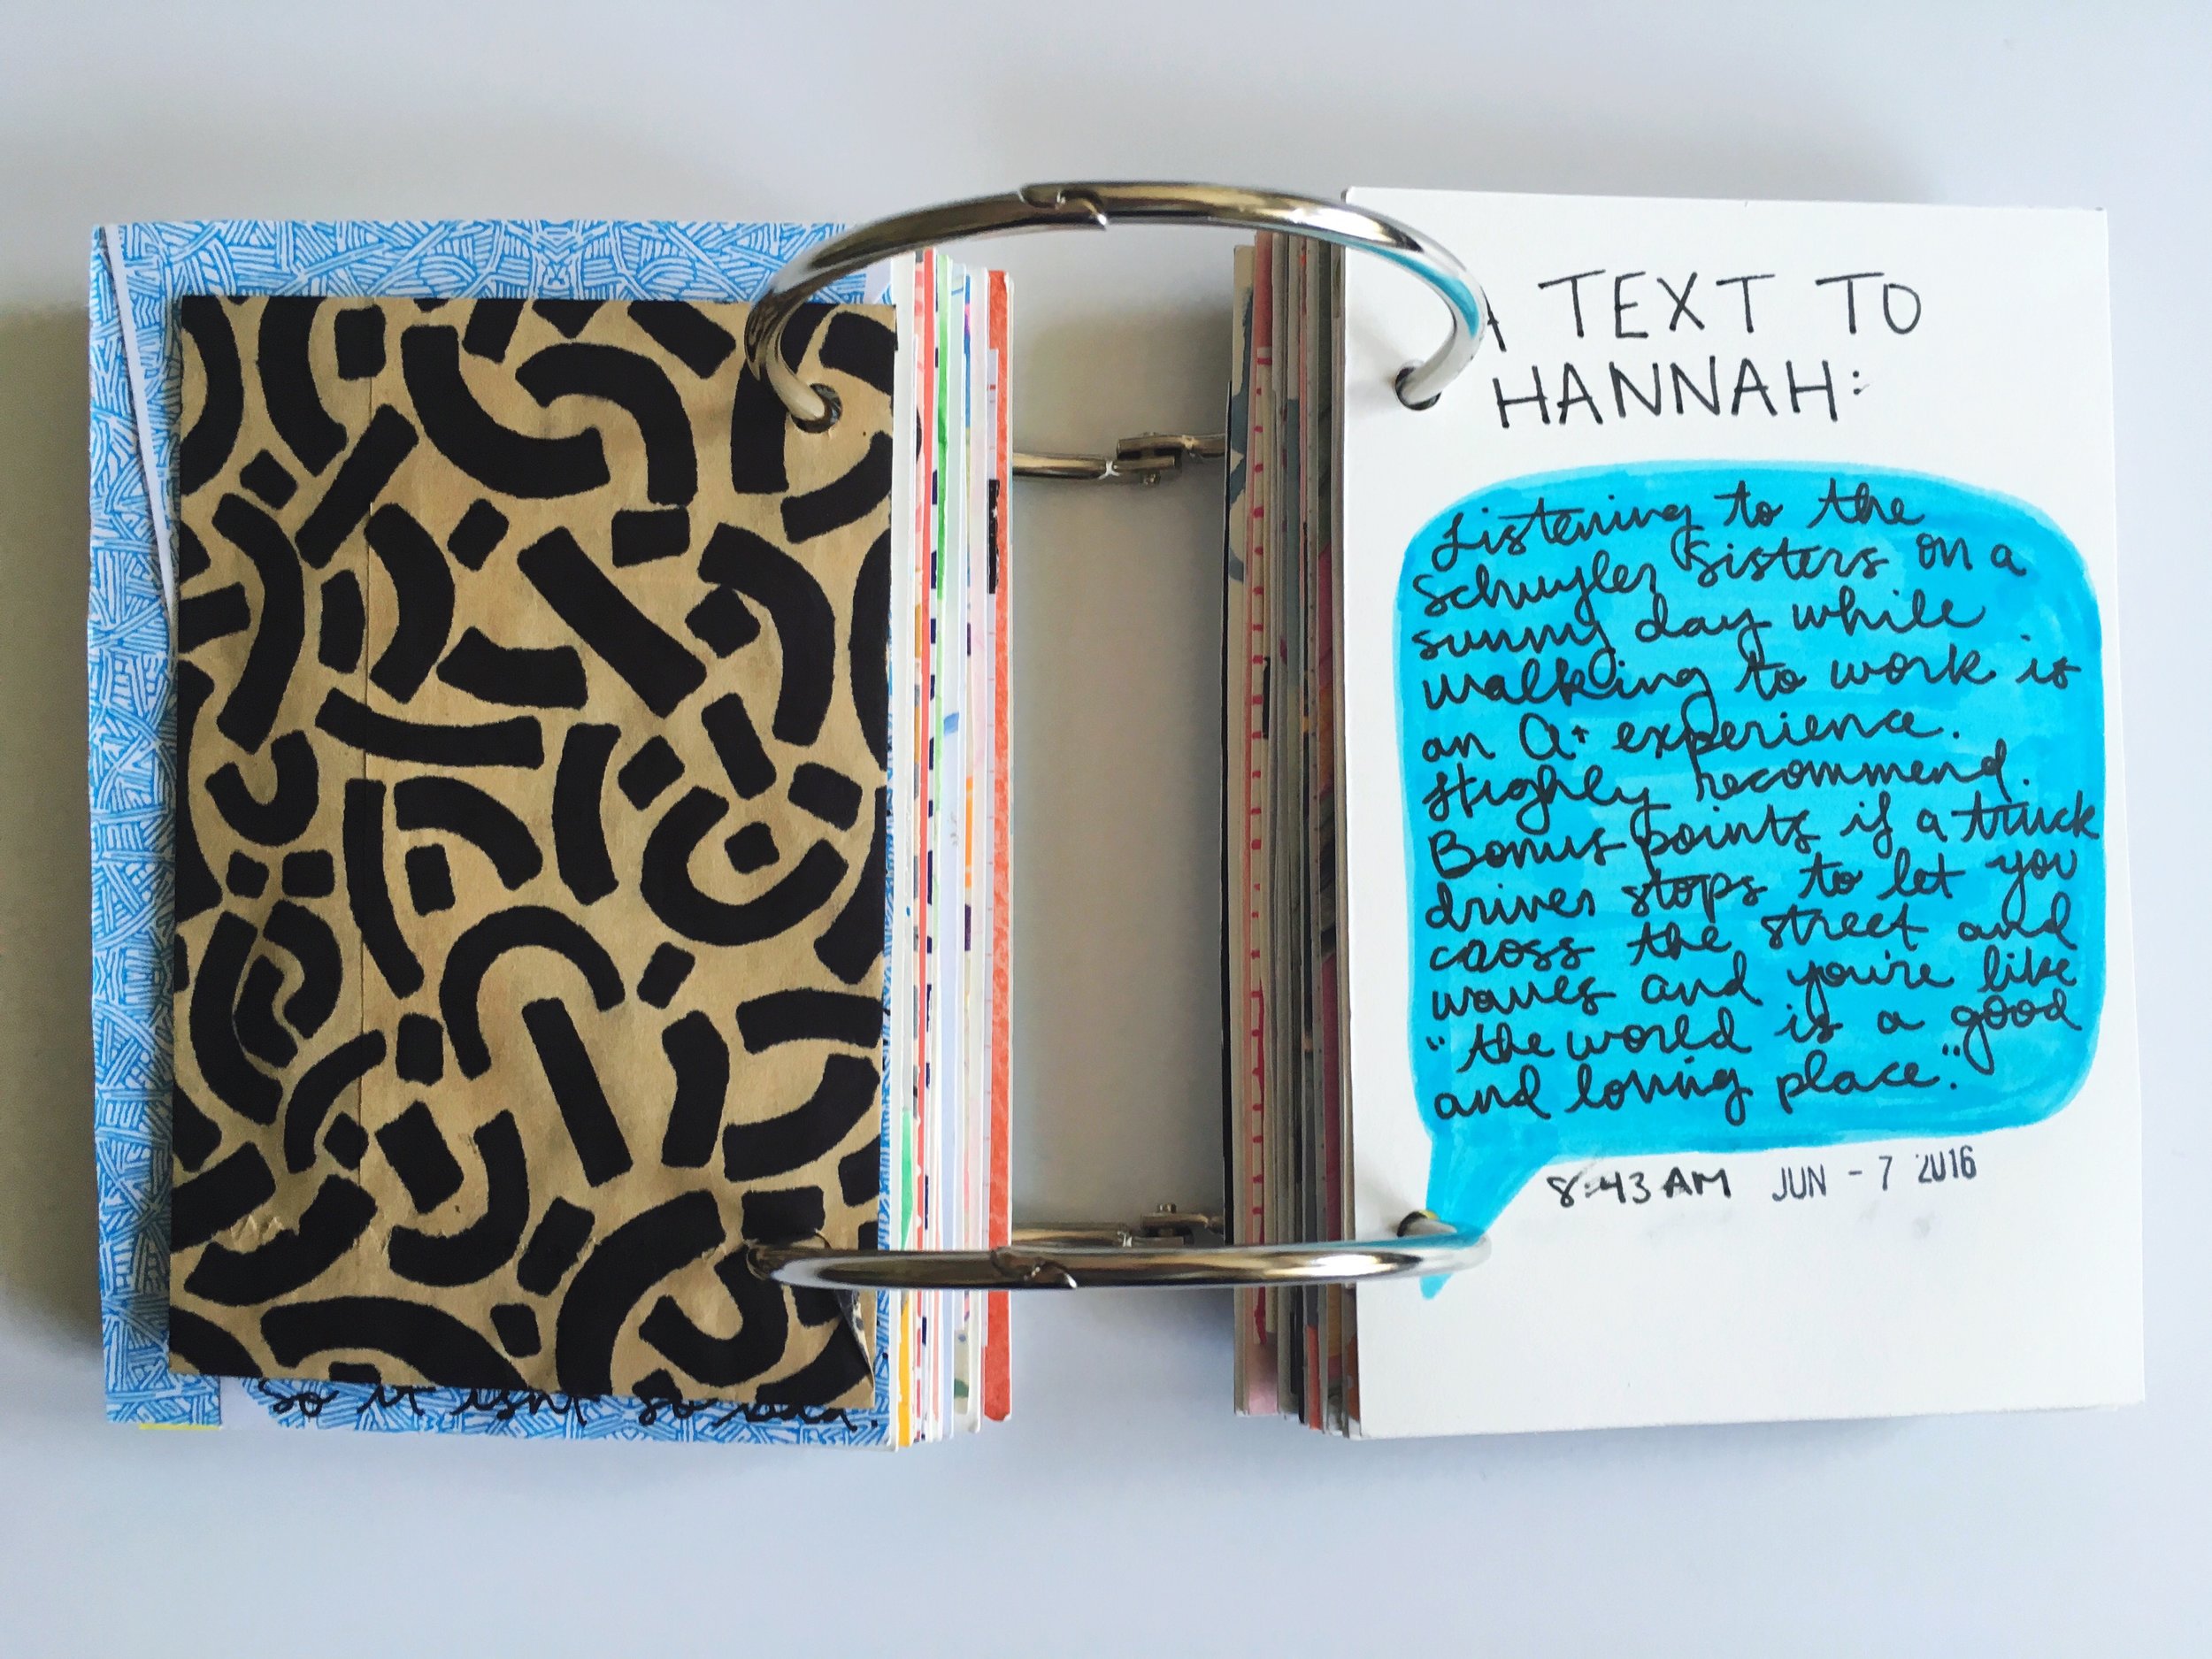 so it isn't so bad.
A TEXT TO
HANNAH:
Listening to the
Schuyler Sisters on a
sunny day while
walking to work is
an A+ experience.
Highly recommend.
Bonus points if a truck
driver stops to let you
cross the street and
waves and you're like
"the world is a good
and loving place."
8:43 AM JUN - 7 2016